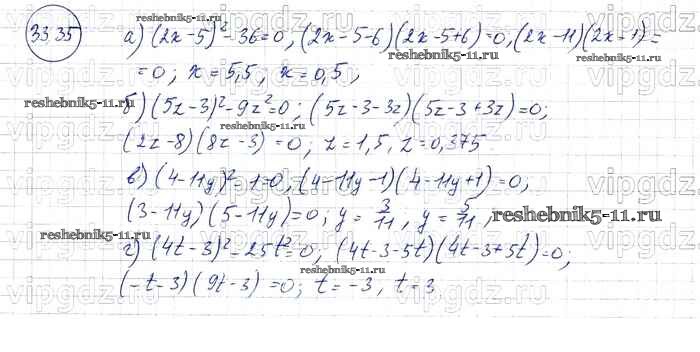 33.35
а) (2x-5)² - 36 = 0, (2x-5-6)(2x-5+6)=0, (2x-11)(2x-1)=
= 0; x = 5,5, x = 0,5;
б) (5z-3)² - 9z² = 0; (5z-3-3z)(5z-3+3z)=0;
(2z-8)(8z-3) = 0, z = 1,5, z = 0,375
в) (4-11y)² - 1 = 0, (4-11y-1)(4-11y+1) = 0,
(3-11y)(5-11y) = 0; y = 3/11, y = 5/11,
г) (4t-3)² - 25t² = 0, (4t-3-5t)(4t-3+5t)=0;
(-t-3)(9t-3) = 0; t = -3, t = 3
reshebnik5-11.ru
reshebnik5-11.ru
reshebnik5-11.ru
reshebnik5-11.ru
reshebnik5-11.ru
reshebnik5-11.ru
reshebnik5-11.ru
reshebnik5-11.ru
vipgdz.ru
vipgdz.ru
vipgdz.ru